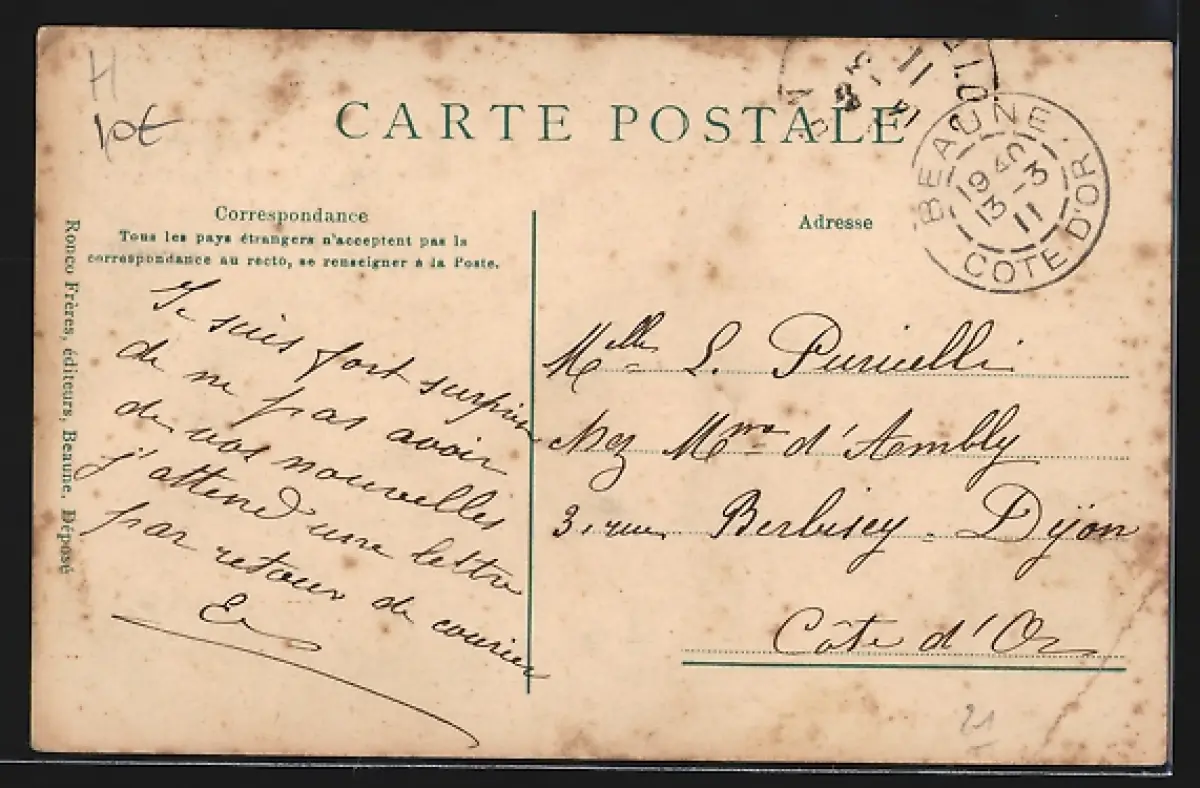 H
10€
CARTE POSTALE
BEAUNE
19 40
13 - 3
11
COTE D'OR
Correspondance
Tous les pays étrangers n'acceptent pas la
correspondance au recto, se renseigner à la Poste.
Adresse
Ronco Frères, éditeurs, Beaune. Déposé
Je suis fort surpris
de ne pas avoir
de vos nouvelles
j'attend une lettre
par retour de courier
Melle L.
chez Mme d'Ambly
3, rue Berbisey - Dijon
Côte d'Or
21